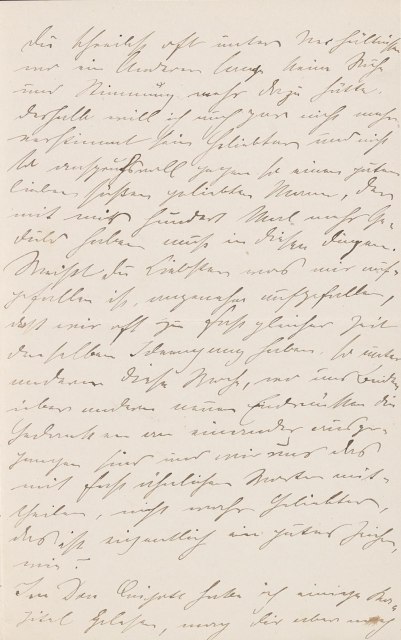 Du schreibst oft unter Verhältnissen
wo ein Anderer lange keine Ruhe
und Stimmung mehr dazu hätte.
Deshalb will ich auch gar nicht mehr
verstimmt sein Geliebter und nicht
so anspruchsvoll gegen so einen guten
lieben süßen geliebten Mann, der
mit mir hundert Mal mehr Ge-
duld haben muß in diesen Dingen.
Weißt du Liebster was mir auf-
gefallen ist, angenehm aufgefallen,
daß wir oft zu fast gleicher Zeit
denselben Ideengang haben. So unter
anderem diese Woche, wo uns beiden
über anderen neuen Eindrücken die
Gedanken an einander ausge-
gangen sind und wir uns das
mit fast ähnlichen Worten mit-
theilen, nicht wahr Geliebter,
das ist eigentlich ein gutes Zeichen,
wie?
Im Don Quixote habe ich einige Ka-
pitel gelesen, mag dir aber noch